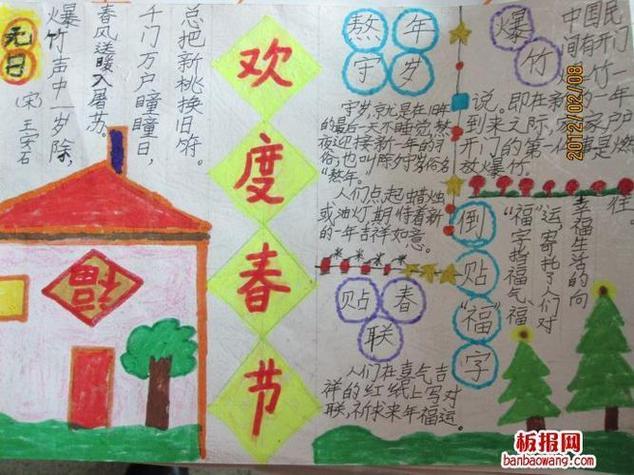 元日
(宋)王安石
爆竹声中一岁除,
春风送暖入屠苏。
千门万户瞳瞳日,
总把新桃换旧符。
欢度春节
熬年
守岁
守岁,就是在旧年
的最后一天不睡觉,熬
夜迎接新一年的
也叫除夕守岁俗名
“熬年”。
人们点起蜡烛
或油灯期待着新
的一年吉祥如意。
贴春
联
人们在喜气吉
祥的红纸上写对
联,祈伏来年福运。
爆
竹
中国民
间有“开门
爆竹”一
说。即在新的一年
到来之际,家家户户
开门的第一件事是燃
放爆竹。
倒贴“福”字
“福”字指福气、福
运寄托了人们对
幸福生活的向
往
福
2012/02/08
板报网
banbaowang.com